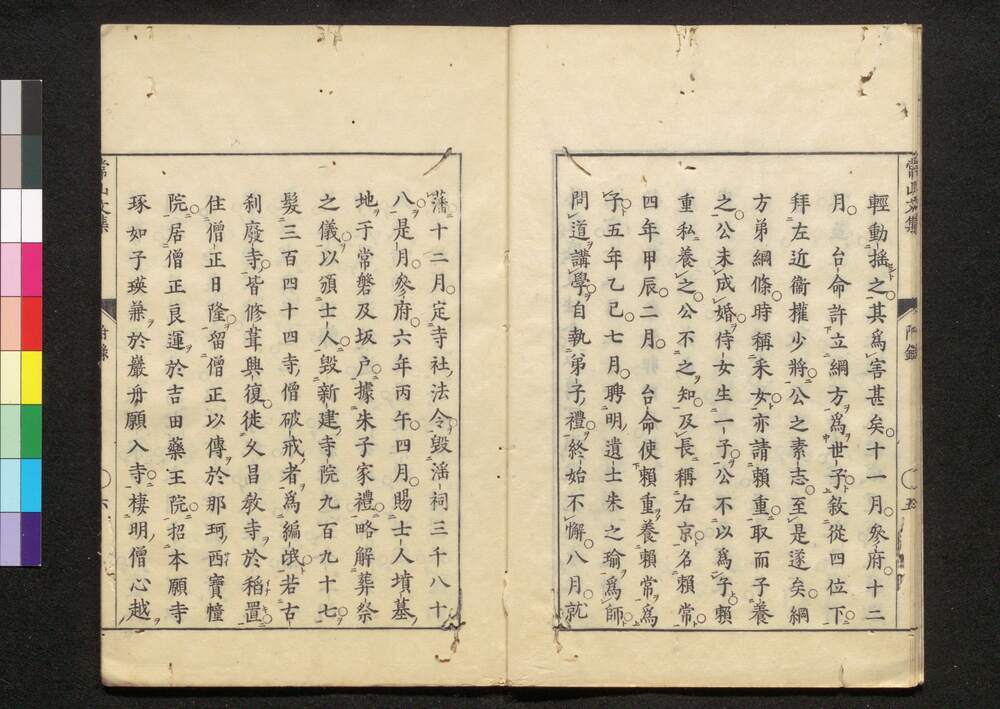 輕動搖之其爲害甚矣十一月參府十二
月台命許立綱方爲世子敘從四位下
拜左近衞權少將公之素志至是遂矣綱
方弟綱條時稱采女亦請賴重取而子養
之公未成婚侍女生一子公不以爲子賴
重私養之公不之知及長稱右京名賴常
四年甲辰二月台命使賴重養賴常爲
子五年乙巳七月聘明遺士朱之瑜爲師
問道講學自執弟子禮終始不懈八月就
藩十二月定寺社法令毀淫祠三千八十
八是月參府六年丙午四月賜士人墳墓
地于常磐及坂戶據朱子家禮略解葬祭
之儀以頒士人毀新建寺院九百九十七
髮三百四十四寺僧破戒者爲編氓若古
刹廢寺皆修葺興復徙久昌敎寺於稻置
住僧正日隆留僧正以傳於那珂西寶幢
院居僧正良運於吉田藥王院招本願寺
琢如子瑛兼於巖舟願入寺棲明僧心越
常山文集
附錄
常山文集
附錄
六